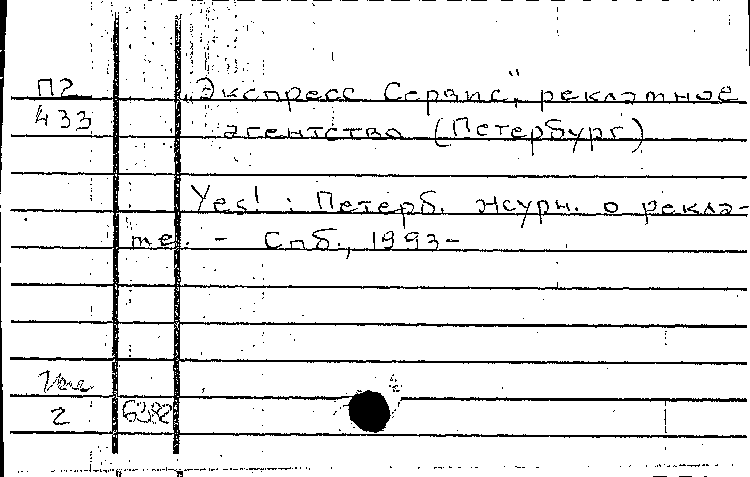 П2
433
„Экспресс Сервис", рекламное
агентство (Петербург)
Yes! : Петерб. журн. о рекла-
ме. - Спб., 1993-
2
6382